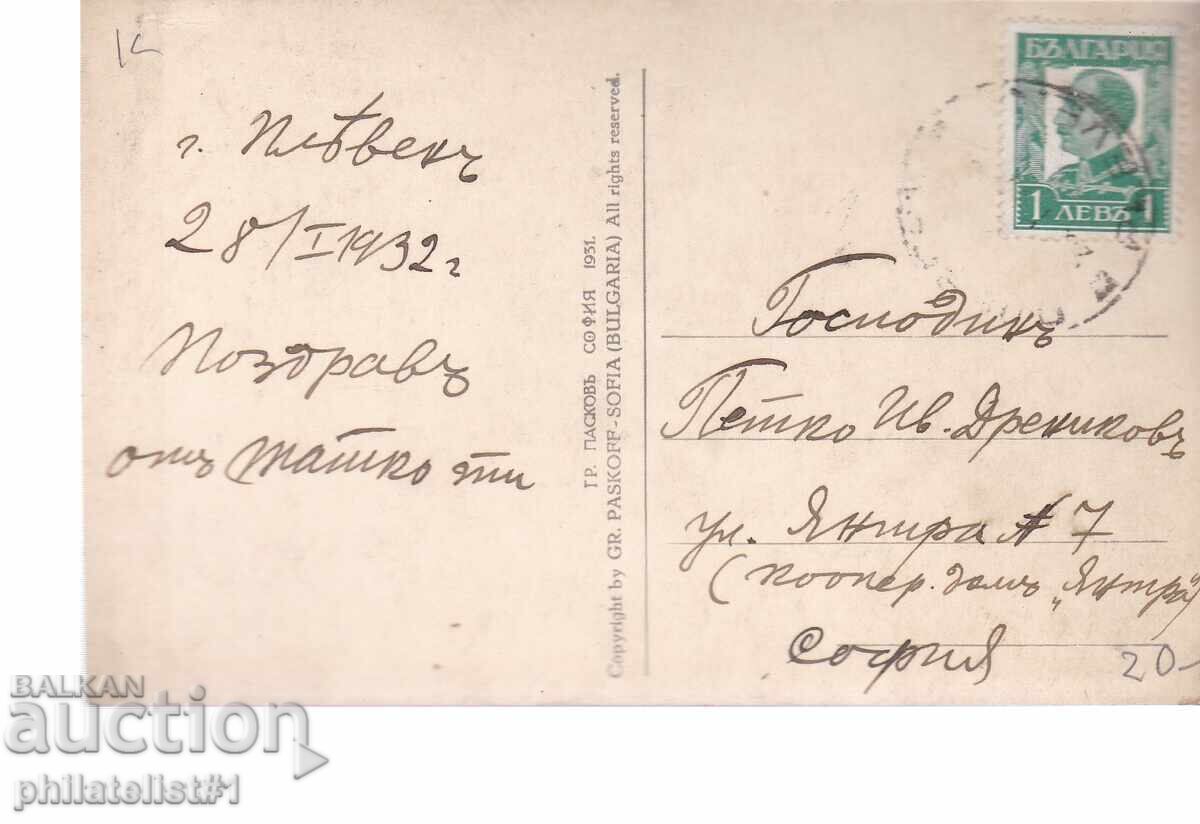 г. Плѣвенъ
28/I 1932 г
Поздравъ
отъ татко ти
ГР. ПАСКОВЪ СОФИЯ 1931.
Copyright by GR. PASKOFF - SOFIA (BULGARIA) All rights reserved.
БЪЛГАРИЯ
1 ЛЕВЪ 1
Господинъ
Петко Ив. Дрениковъ
ул. Янтра № 7
(коопер. домъ „Янтра")
София
20-
BALKAN
auction
philatelist#1